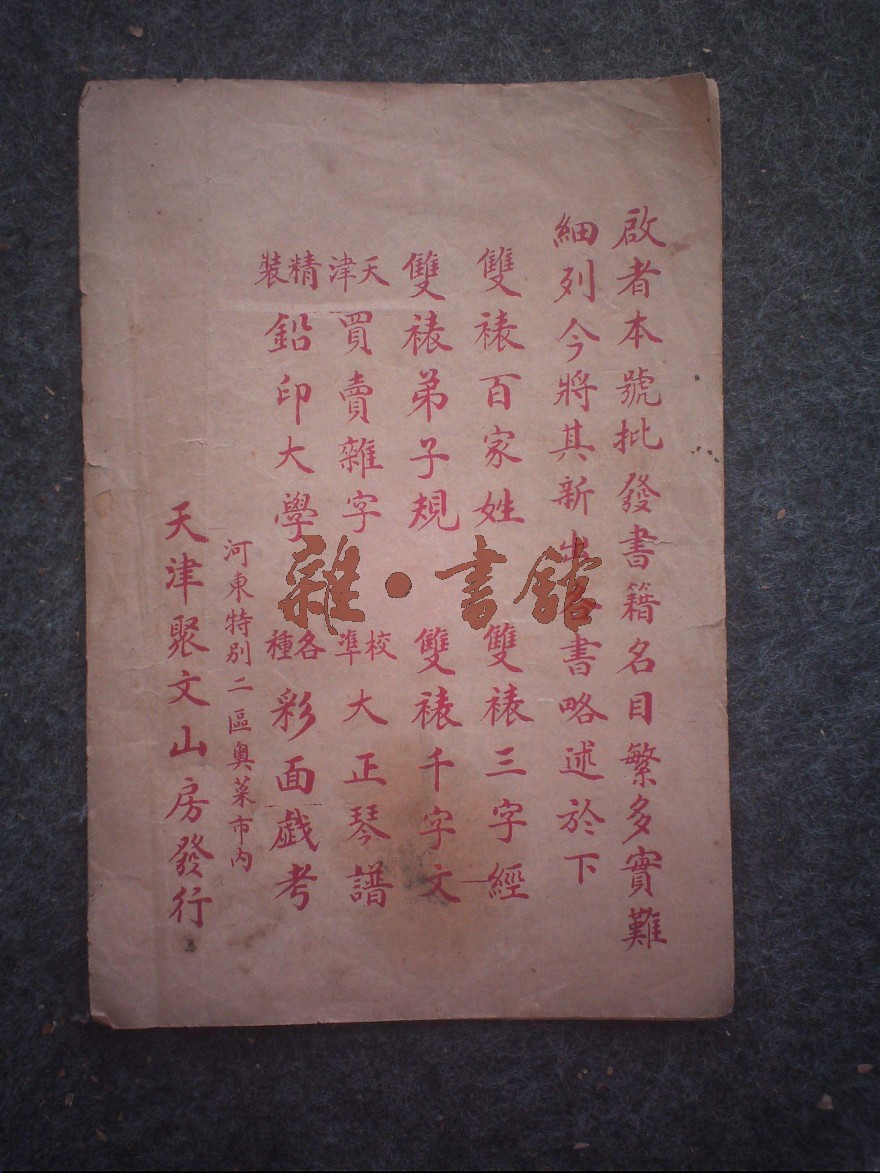 啟者本號批發書籍名目繁多實難
細列今將其新出各書略述於下
雙裱百家姓 雙裱三字經
雙裱弟子規 雙裱千字文
天津買賣雜字 校準大正琴譜
精裝鉛印大學 各種彩面戯考
河東特別二區奥菜市內
天津聚文山房發行
雜·書館